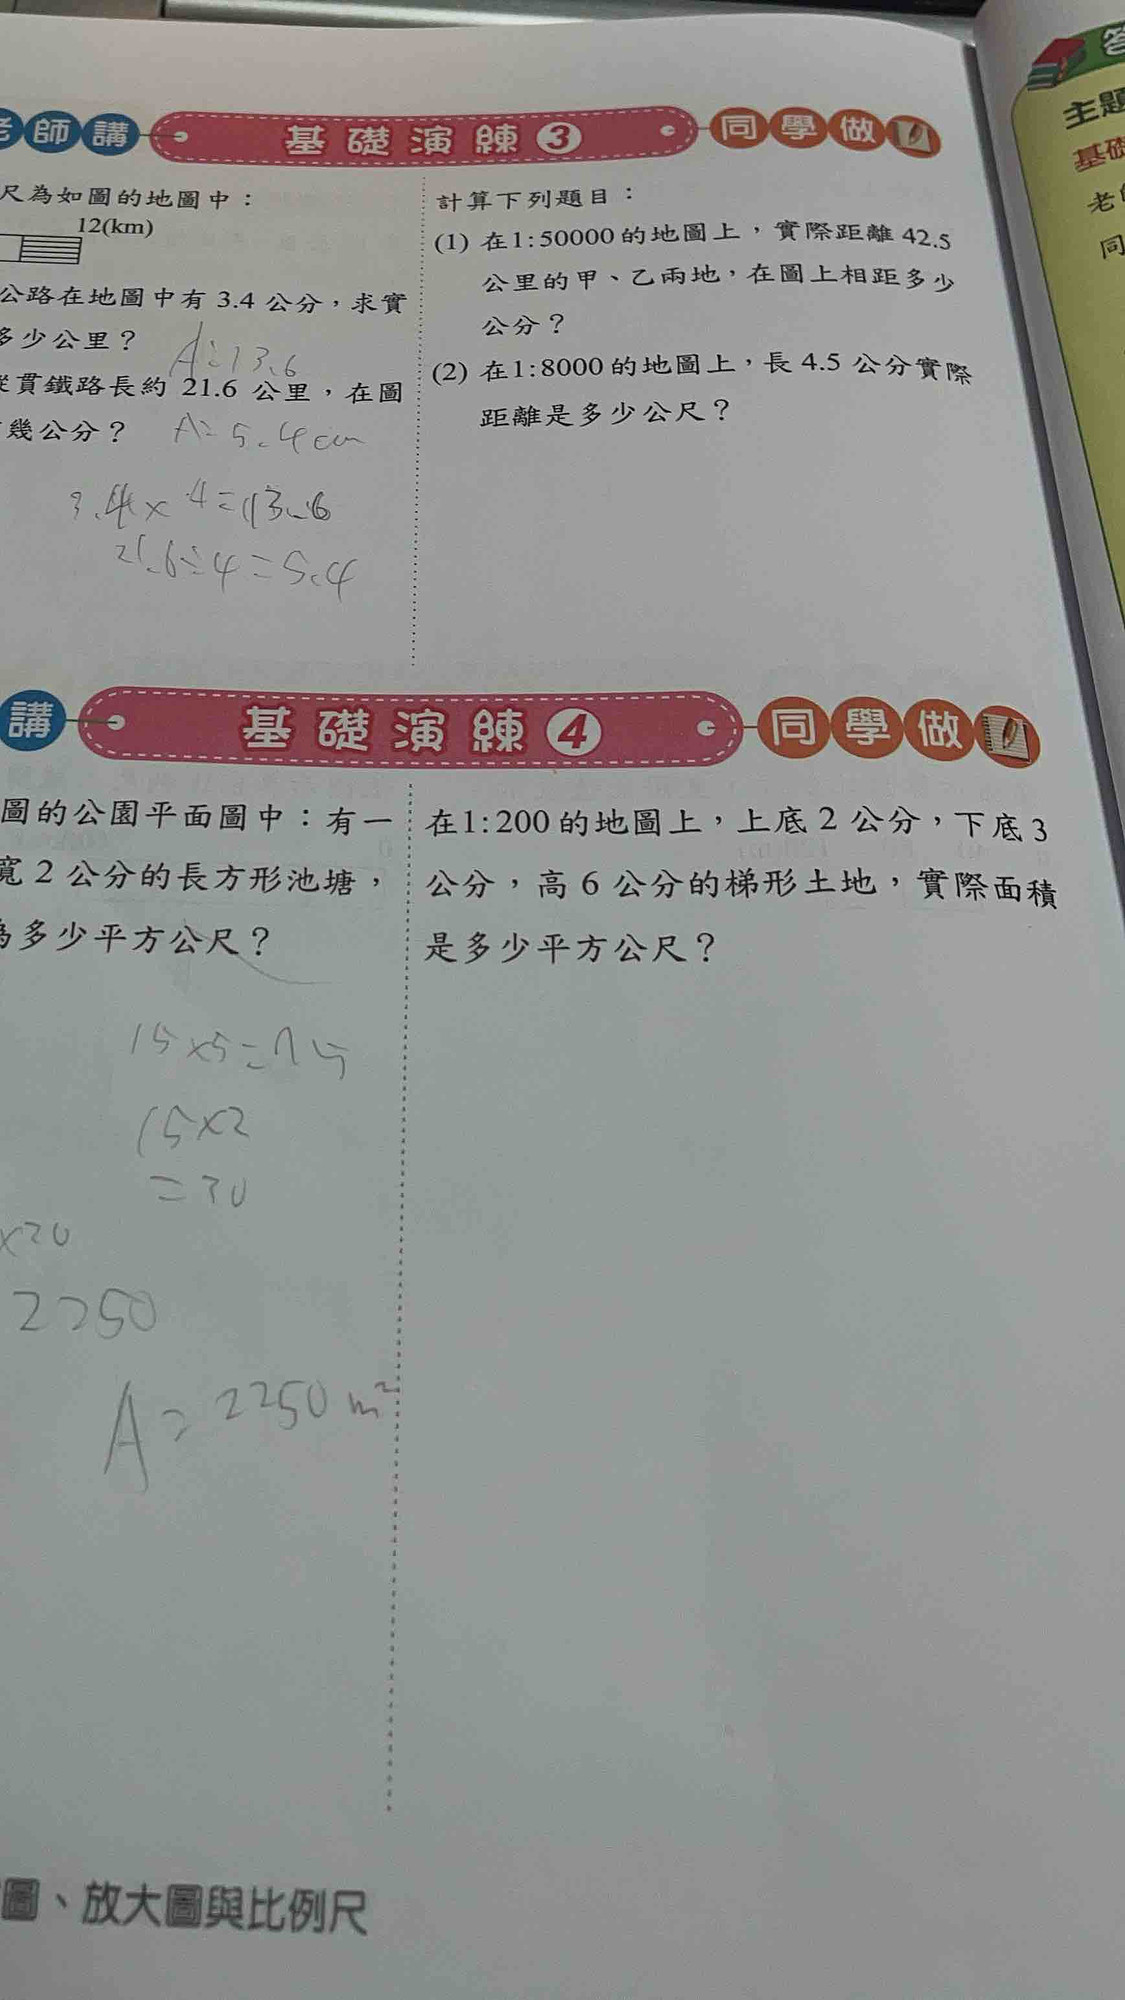 師講
基礎演練3
同學做
答
主題
基礎
老
同
尺為如圖的地圖中：
12(km)
公路在地圖中有 3.4 公分，求實
多少公里？
A=13.6
縱貫鐵路長約 21.6 公里，在圖
幾公分？
A=5.4cm
3.4×4=13.6
21.6÷4=5.4
計算下列題目：
(1) 在1:50000的地圖上，實際距離 42.5
公里的甲、乙兩地，在圖上相距多少
公分？
(2) 在1:8000的地圖上，長 4.5 公分實際
距離是多少公尺？
講
基礎演練4
同學做
圖的公園平面圖中：有一
寬 2 公分的長方形池塘，
為多少平方公尺？
15×5=75
15×2
=30
×30
2250
A=2250m²
在1:200的地圖上，上底 2 公分，下底 3
公分，高 6 公分的梯形土地，實際面積
是多少平方公尺？
圖、放大圖與比例尺